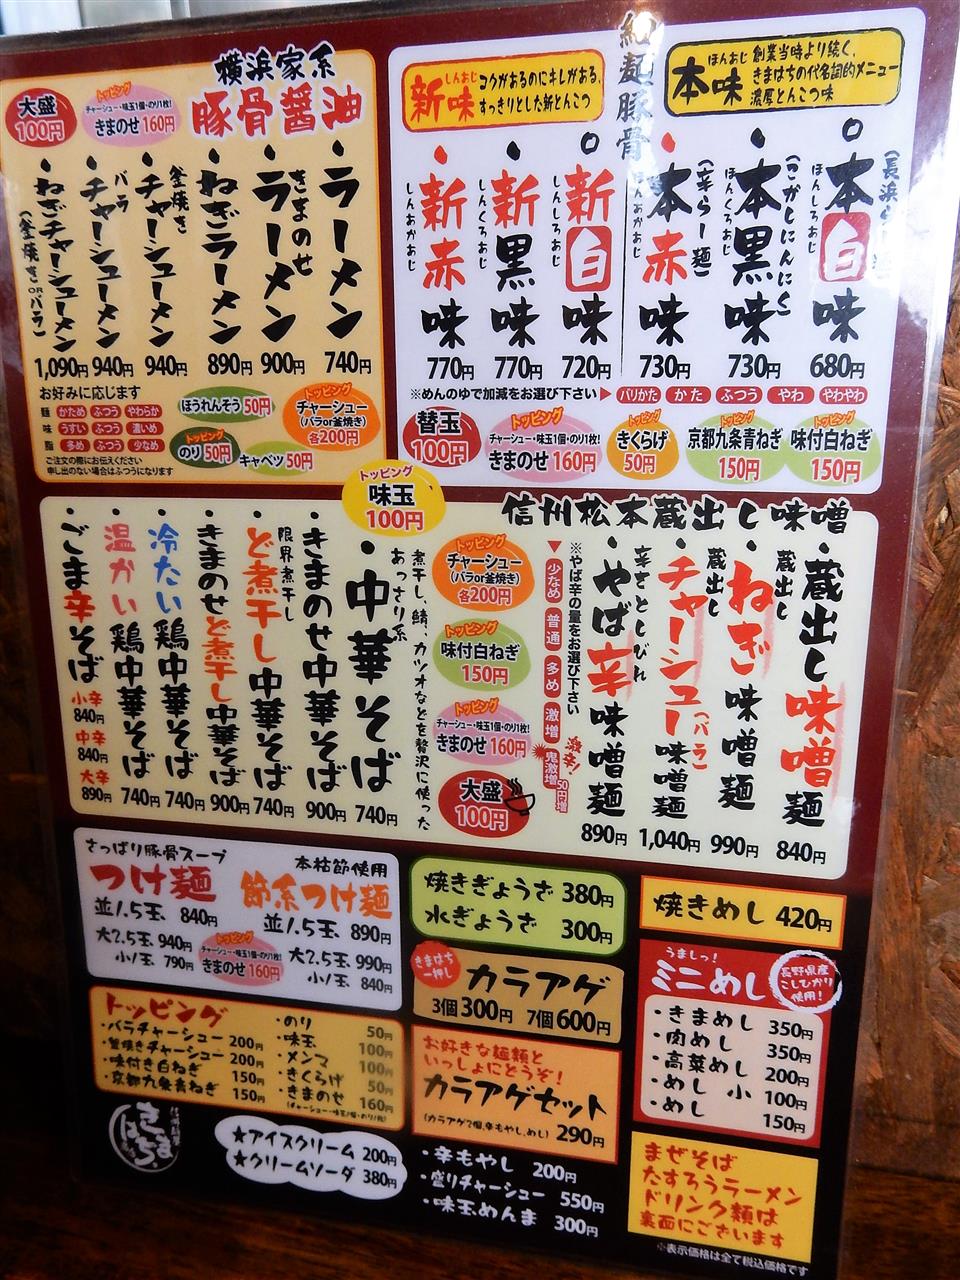 横浜家系
豚骨醤油
大盛
100円
トッピング
チャーシュー・味玉1個・のり1枚!
きまのせ 160円
・ラーメン 740円
・きまのせラーメン 900円
・ねぎラーメン 890円
・釜焼きチャーシューメン 940円
・バラチャーシューメン 940円
・ねぎチャーシューメン(釜焼きORバラ) 1,090円
お好みに応じます
麺 かため ふつう やわらか
味 うすい ふつう 濃いめ
脂 多め ふつう 少なめ
ご注文の際にお伝えください
申し出のない場合はふつうになります
ほうれんそう 50円
トッピング
のり 50円
キャベツ 50円
トッピング
チャーシュー
(バラor釜焼き)
各200円
細麺豚骨
新味
しんあじ
コクがあるのにキレがある、
すっきりとした新とんこつ
本味
ほんあじ
創業当時より続く、
きまはちの代名詞的メニュー
濃厚とんこつ味
本白味 ほんしろあじ 680円
・本黒味 ほんくろあじ (こがしにんにく) 730円
・本赤味 ほんあかあじ (辛らー麺) 730円
新白味 しんしろあじ 720円
・新黒味 しんくろあじ 770円
・新赤味 しんあかあじ 770円
※めんのゆで加減をお選び下さい▶ バリかた かた ふつう やわ やわやわ
替玉
100円
トッピング
チャーシュー・味玉1個・のり1枚!
きまのせ 160円
トッピング
きくらげ
50円
トッピング
京都九条青ねぎ
150円
トッピング
味付白ねぎ
150円
トッピング
味玉
100円
信州松本蔵出し味噌
・蔵出し味噌麺 840円
・蔵出しねぎ味噌麺 990円
・蔵出しチャーシュー(バラ)味噌麺 1,040円
・辛さとしびれ やば辛味噌麺 890円
※やば辛の量をお選び下さい
▼少なめ 普通 多め 激増 鬼激増
激辛!
50円増
トッピング
チャーシュー
(バラor釜焼き)
各200円
トッピング
味付白ねぎ
150円
トッピング
チャーシュー・味玉1個・のり1枚!
きまのせ 160円
大盛
100円
煮干し、鯖、カツオなどを贅沢に使った
あっさり系
・中華そば 740円
・きまのせ中華そば 900円
限界煮干し
・ど煮干し中華そば 740円
・きまのせど煮干し中華そば 900円
・冷たい鶏中華そば 740円
・温かい鶏中華そば 740円
・ごま辛そば
小辛
840円
中辛
840円
大辛
890円
さっぱり豚骨スープ
つけ麺
並1.5玉、840円
大2.5玉、940円
小1玉、790円
本枯節使用
節系つけ麺
並1.5玉、890円
大2.5玉、990円
小1玉、840円
トッピング
チャーシュー・味玉1個・のり1枚!
きまのせ 160円
焼きぎょうざ 380円
水ぎょうざ 300円
焼きめし 420円
きまはち
一押し
カラアゲ
3個 300円 7個 600円
うましっ!
ミニめし
長野県産
こしひかり
使用!
・きまめし 350円
・肉めし 350円
・高菜めし 200円
・めし 小 100円
・めし 150円
トッピング
・バラチャーシュー 200円
・釜焼きチャーシュー 200円
・味付き白ねぎ 150円
・京都九条青ねぎ 150円
・のり 50円
・味玉 100円
・メンマ 100円
・きくらげ 50円
・きまのせ 160円
(チャーシュー・味玉1個・のり1枚)
お好きな麺類と
いっしょにどうぞ!
カラアゲセット
(カラアゲ2個、辛もやし、めし) 290円
きまはち
★アイスクリーム 200円
★クリームソーダ 380円
・辛もやし 200円
・盛りチャーシュー 550円
・味玉めんま 300円
まぜそば
たすろうラーメン
ドリンク類は
裏面にございます
※表示価格は全て税込価格です